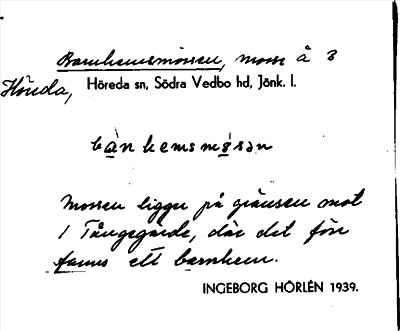 Barnhemsmossen, mosse å 3
Hönda, Höreda sn, Södra Vedbo hd, Jönk. l.
bànhemsmåsan
Mossen ligger på gränsen mot
1 Tångegärde, där det förr
fanns ett barnhem.
INGEBORG HÖRLÉN 1939.